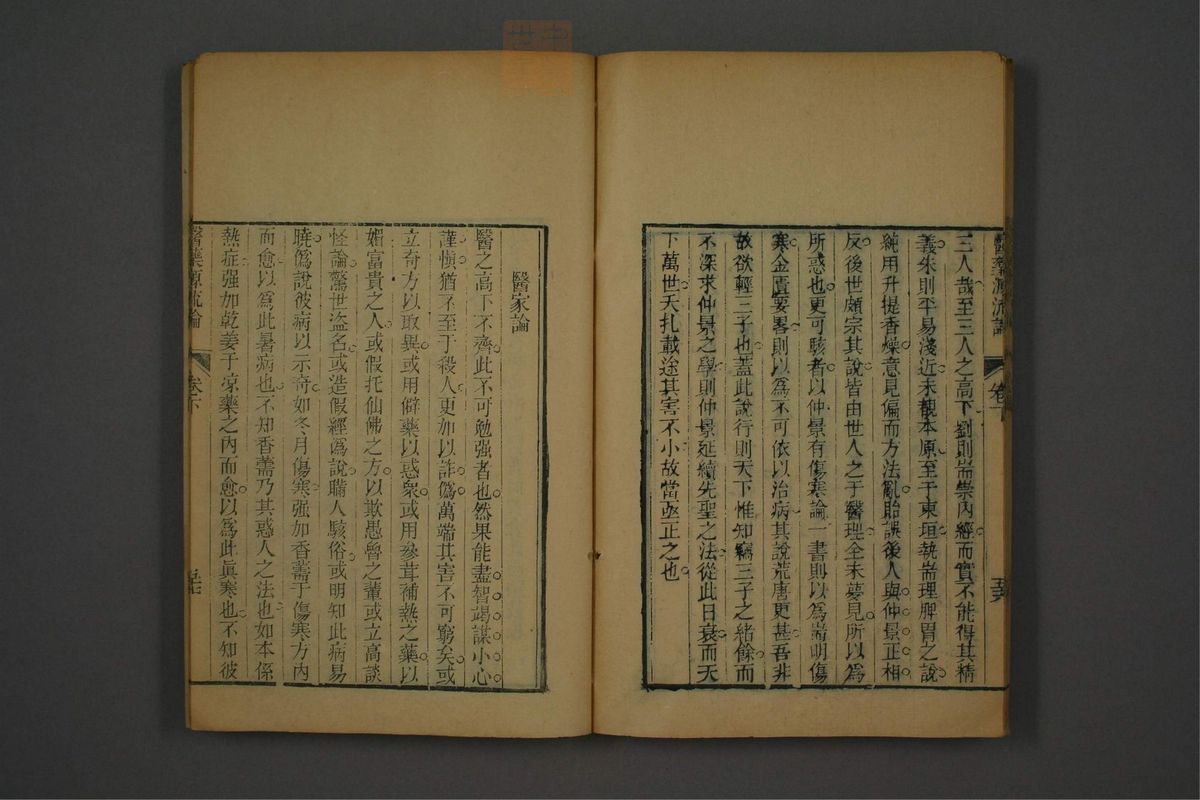 三人哉至三人之高下劉則耑崇內經而實不能得其精
義朱則平易淺近未覩本原至于東垣執耑理脾胃之說
純用升提香燥意見偏而方法亂貽誤後人與仲景正相
反後世頗宗其說皆由世人之于醫理全未夢見所以為
所惑也更可駭者以仲景有傷寒論一書則以為耑明傷
寒金匱要畧則以為不可依以治病其說荒唐更甚吾非
故欲輕三子也蓋此說行則天下惟知竊三子之緒餘而
不深求仲景之學則仲景延續先聖之法從此日衰而天
下萬世夭扎載途其害不小故當亟正之也
醫藥源流論 卷下
醫家論
醫之高下不齊此不可勉强者也然果能盡智竭謀小心
謹愼猶不至于殺人更加以詐僞萬端其害不可窮矣或
立奇方以取異或用僻藥以惑衆或用參茸補熱之藥以
媚富貴之人或假托仙佛之方以欺愚魯之輩或立高談
怪論驚世盜名或造假經僞說瞞人駭俗或明知此病易
曉僞說彼病以示奇如冬月傷寒强加香薷于傷寒方內
而愈以爲此暑病也不知香薷乃其惑人之法也如本係
熱症强加乾姜于凉藥之內而愈以爲此眞寒也不知彼
醫藥源流論 卷下